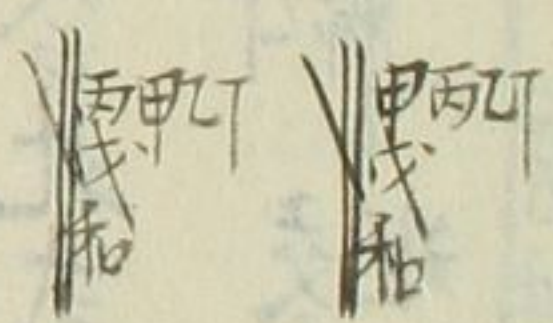 丙甲乙丁
戊
和
甲丙乙丁
戊
和